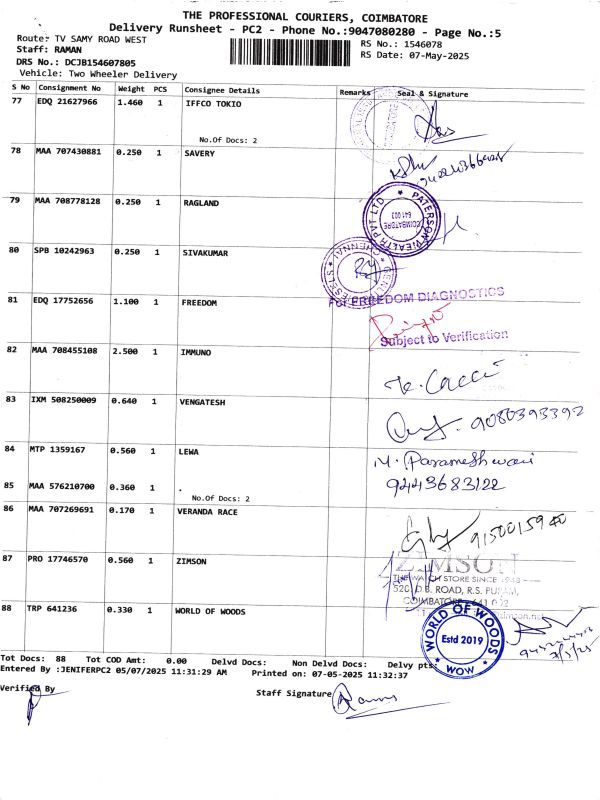 THE PROFESSIONAL COURIERS, COIMBATORE
Delivery Runsheet - PC2 - Phone No.:9047080280 - Page No.:5
Route: TV SAMY ROAD WEST
RS No.: 1546078
Staff: RAMAN
RS Date: 07-May-2025
DRS No.: DCJB154607805
Vehicle: Two Wheeler Delivery
S No Consignment No Weight PCS Consignee Details Remarks Seal & Signature
77 EDQ 21627966 1.460 1 IFFCO TOKIO
No.Of Docs: 2
78 MAA 707430881 0.250 1 SAVERY
79 MAA 708778128 0.250 1 RAGLAND
PATERSON WEALTH PVT LTD
COIMBATORE
641 002
80 SPB 10242963 0.250 1 SIVAKUMAR
CHENNAI
81 EDQ 17752656 1.100 1 FREEDOM
For FREEDOM DIAGNOSTICS
Subject to Verification
82 MAA 708455108 2.500 1 IMMUNO
83 IXM 508250009 0.640 1 VENGATESH
9080393392
84 MTP 1359167 0.560 1 LEWA
M. Parameshwari
9443683122
85 MAA 576210700 0.360 1 .
No.Of Docs: 2
86 MAA 707269691 0.170 1 VERANDA RACE
9150015940
87 PRO 17746570 0.560 1 ZIMSON
ZIMSON
THE WATCH STORE SINCE 1948
520, D.B. ROAD, R.S. PURAM,
COIMBATORE - 641 002
88 TRP 641236 0.330 1 WORLD OF WOODS
WORLD OF WOODS
Estd 2019
WOW
7/5/25
Tot Docs: 88 Tot COD Amt: 0.00 Delvd Docs: Non Delvd Docs: Delvy pts:
Entered By :JENIFERPC2 05/07/2025 11:31:29 AM Printed on: 07-05-2025 11:32:37
Verified By
Staff Signature